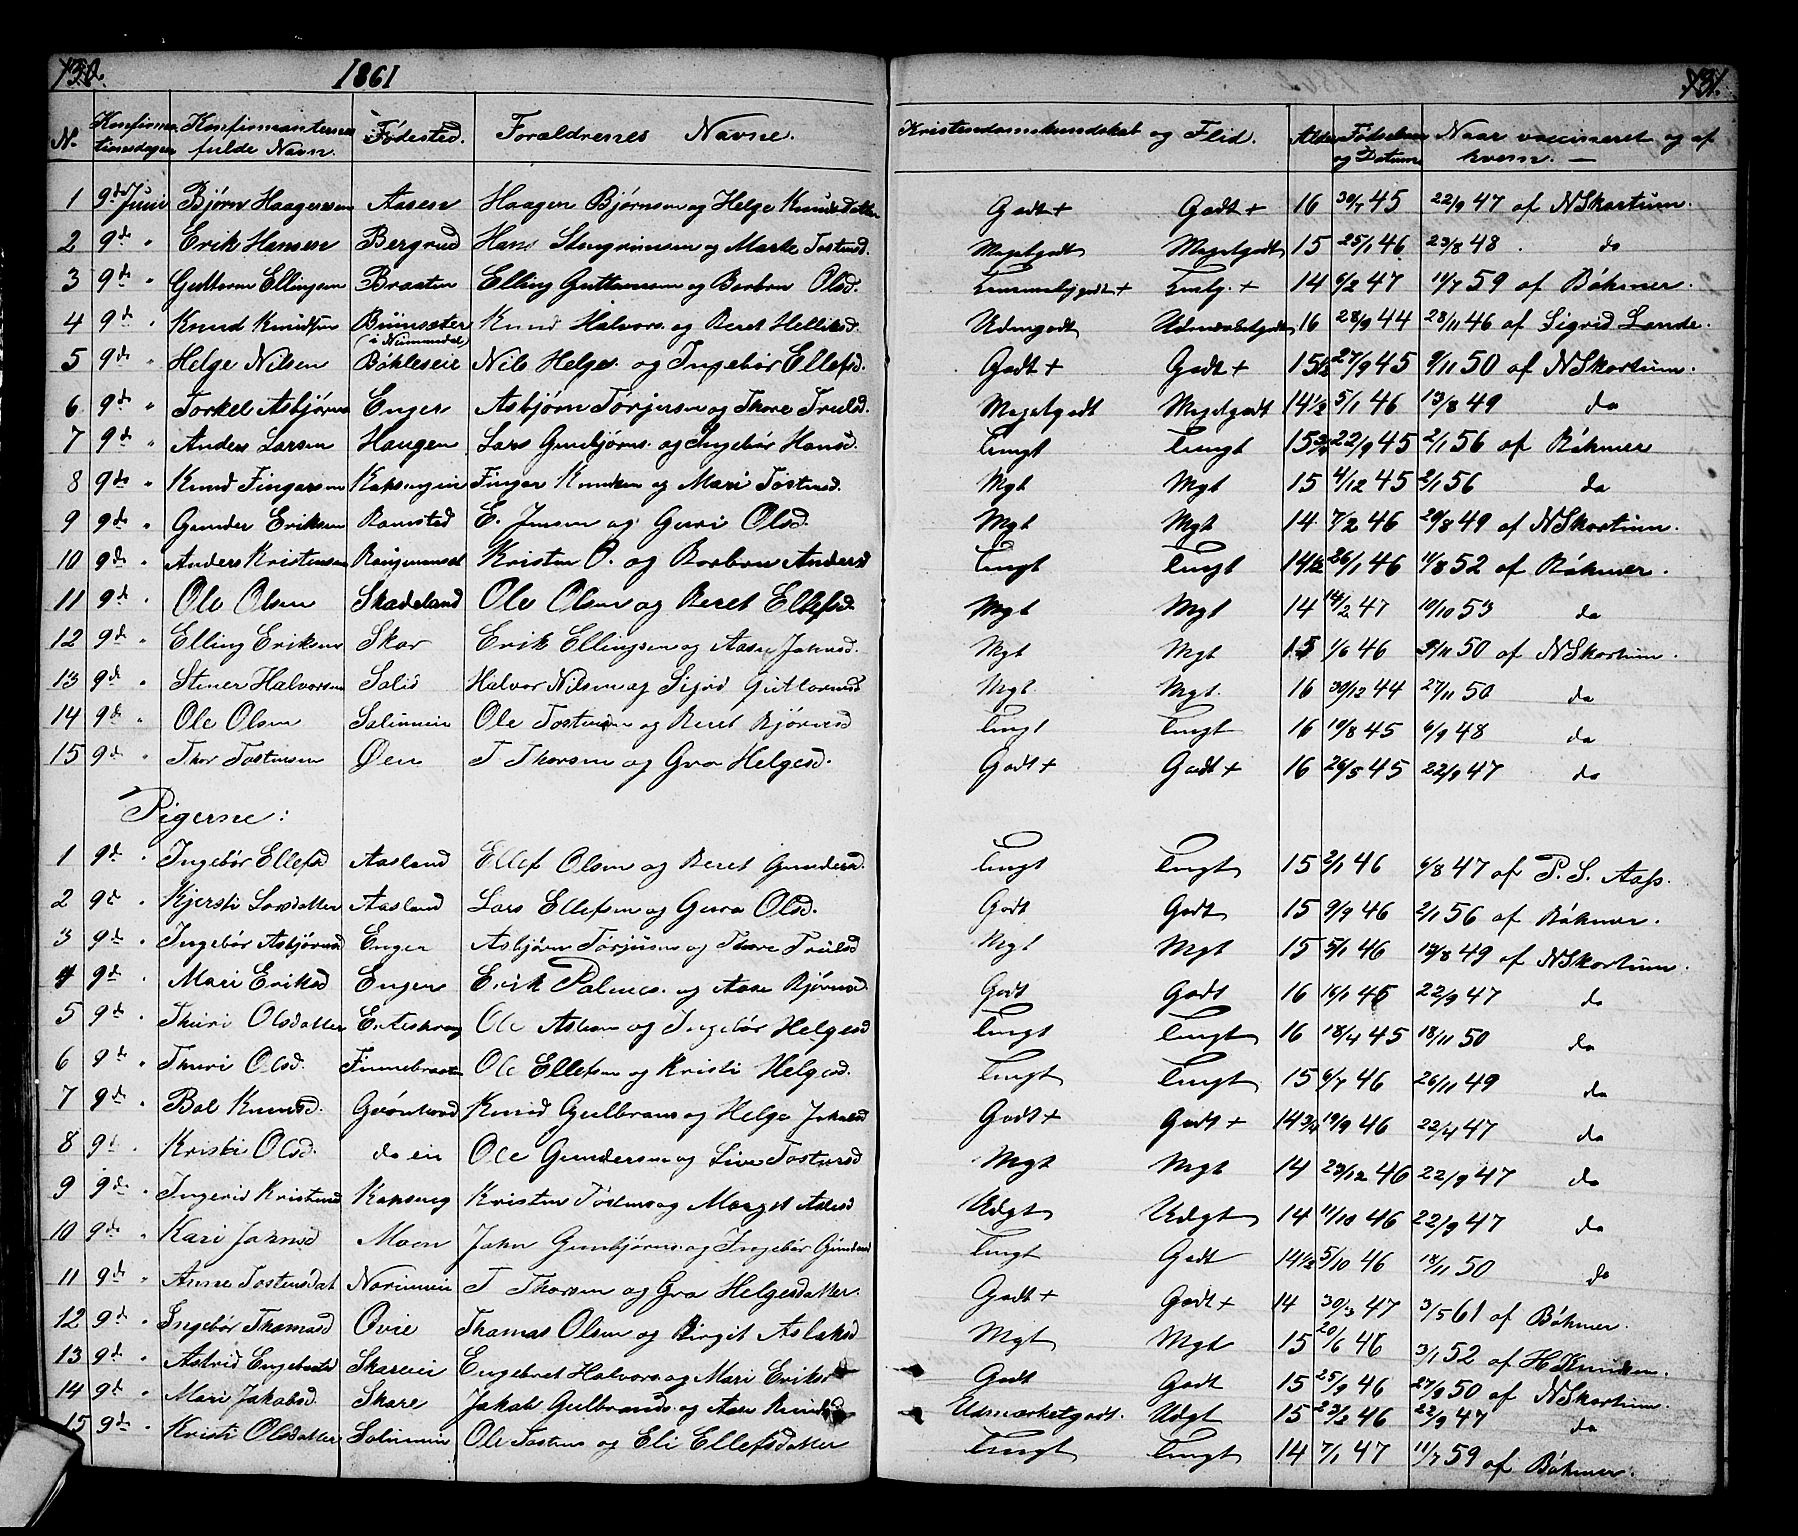 130. 1861 131.
N. Konfirmationsdagen Konfirmanternes fulde Navn. Fødested. Forældrenes Navne. Kristendomskundskab og Flid. Alder Fødselsaar og Datum Naar vaccineret og af hvem. —
1 9de Juni Bjørn Haagensen Aasen Haagen Bjørnsen og Helge Knudsdatter Godt + Godt + 16 30/7 45 22/9 47 af N Skortum.
2 9de " Erik Hansen Bergrud Hans Stengrimsen og Marte Tostensd. Megetgodt Megetgodt 15 25/1 46 23/8 48 . do
3 9de " Guttorm Ellingsen Braaten Elling Guttormsen og Barbro Olsd. 14 6/2 47 11/7 59 af Bøhmer.
4 9de " Knud Knudsen Buinsæter (i Nummedal) Knud Halvors. og Beret Helliksd. Udmgodt Udmærketgodt 16 28/9 44 23/11 46 af Sigrid Lande.
5 9de " Helge Nilsen Bøhleseie Nils Helges. og Ingebør Ellefsd. Godt + Godt + 15 1/2 27/9 45 9/11 50 af N Skortum.
6 9de " Torkel Asbjørns Enger Asbjørn Torjusen og Thore Trulsd. Megetgodt Megetgodt 14 1/2 5/1 46 13/8 49 do
7 9de " Anders Larsen Haugen Lars Gunbjørns. og Ingebør Hansd. Temgt Temgt 15 3/4 22/9 45 2/1 56 af Bøhmer
8 9de " Knud Fingarsen Finger Knudsen og Mari Tostensd. Mgt Mgt 15 4/12 45 2/1 56 do
9 9de " Gunder Eriksen Ramsted E. Jensen og Guri Olsd. Mgt Mgt 14. 7/2 46 29/8 49 af N Skortum.
10 9de " Anders Kristensen Kristen O. og Barbro Andersd Temgt Temgt 14 1/2 26/1 46 11/8 52 af Bøhmer.
11 9de " Ole Olsen Skadeland Ole Olsen og Beret Ellefsd. Mgt Mgt 14 14/2 47 10/10 53 do
12 9de " Elling Eriksen Skar Erik Ellingsen og Aase Jahnsd. Mgt Mgt 15 1/6 46 9/11 50 af N Skortum.
13 9de " Stener Halvorsen Solid Halvor Nilsen og Sigrid Guttormsd Mgt. Mgt. 16 30/12 44 27/11 50 do
14 9de " Ole Olsen Solumeie Ole Tostensen og Beret Bjørnsd Temgt Temgt 16 10/8 45 6/9 48 do
15 9de " Thor Tostensen Øen T Thorsen og Gro Helgesd. Godt + Godt + 16 26/5 45 22/9 47 do
Pigerne:
1 9de " Ingebør Ellefsd Aasland Ellef Olsen og Beret Gundersd. Temgt Temgt 15 2/1 46 6/8 47 af P. S. Aass.
2 9de " Kjersti Larsdatter Aasland Lars Ellefsen og Guro Olsd. Godt Godt 15 9/9 46 2/1 56 af Bøhmer.
3 9de " Ingebør Asbjørnsd Enger Asbjørn Torjusens og Thore Trulsd Mgt Mgt 15 5/1 46 13/8 49 af N Skortum.
4 9de " Mari Eriksd Enger Erik Palmes. og Aase Bjørnsd. Godt Godt 16 16/1 45 22/9 47 do
5 9de " Thuri Olsdatter Ole Aslesen og Ingebør Helgesd Temgt Temgt 16 18/4 45 18/11 50 do
6 9de " Thuri Olsd. Finnebraaten Ole Ellefsen og Kristi Helgesd. Temgt Temgt 15 6/7 46 26/11 49 do
7 9de " Bol Knudsd. Grønhovd Knud Gulbrans og Helga Jakobsd Godt + Godt + 14 3/4 19/9 46 22/4 47 do
8 9de " Kristi Olsd. do eie Ole Gundersen og Live Tostensd Mgt Mgt 14 23/12 46 22/9 47 do
9 9de " Ingerid Kristensd Kristen Tostens og Marget Aslesd Udgt Udgt 14 11/10 46 22/9 47 do
10 9de " Kari Jahnsd Moen Jahn Gunbjørns. og Ingebør Gundersd Temgt Godt 14 1/2 5/10 46 18/11 50 do
11 9de " Anne Tostensdat Norimeie T Thorsen og Gro Helgesdatter. Godt + Godt + 14 30/3 47 3/5 61 af Bøhmer.
12 9de " Ingebør Thomasd Ovie Thomas Olsen og Birgit Aslaksd Mgt Mgt 15 20/6 46 3/1 52 af H Knudsen.
13 9de " Astrid Engebretsd Skareeie Engebret Halvors og Mari Eriksd Godt Godt 15 25/9 46 27/9 50 af N Skortum.
14 9de " Mari Jakobsd. Skare Jakob Gulbrands og Aase Knudsd Udmærketgodt. Udgt 15 23/2 46 22/9 47 do
15 9de " Kristi Olsdatter Solumeie Ole Tostens og Eli Ellefsdatter Temgt Temgt 14 7/1 47 11/7 59 af Bøhmer.